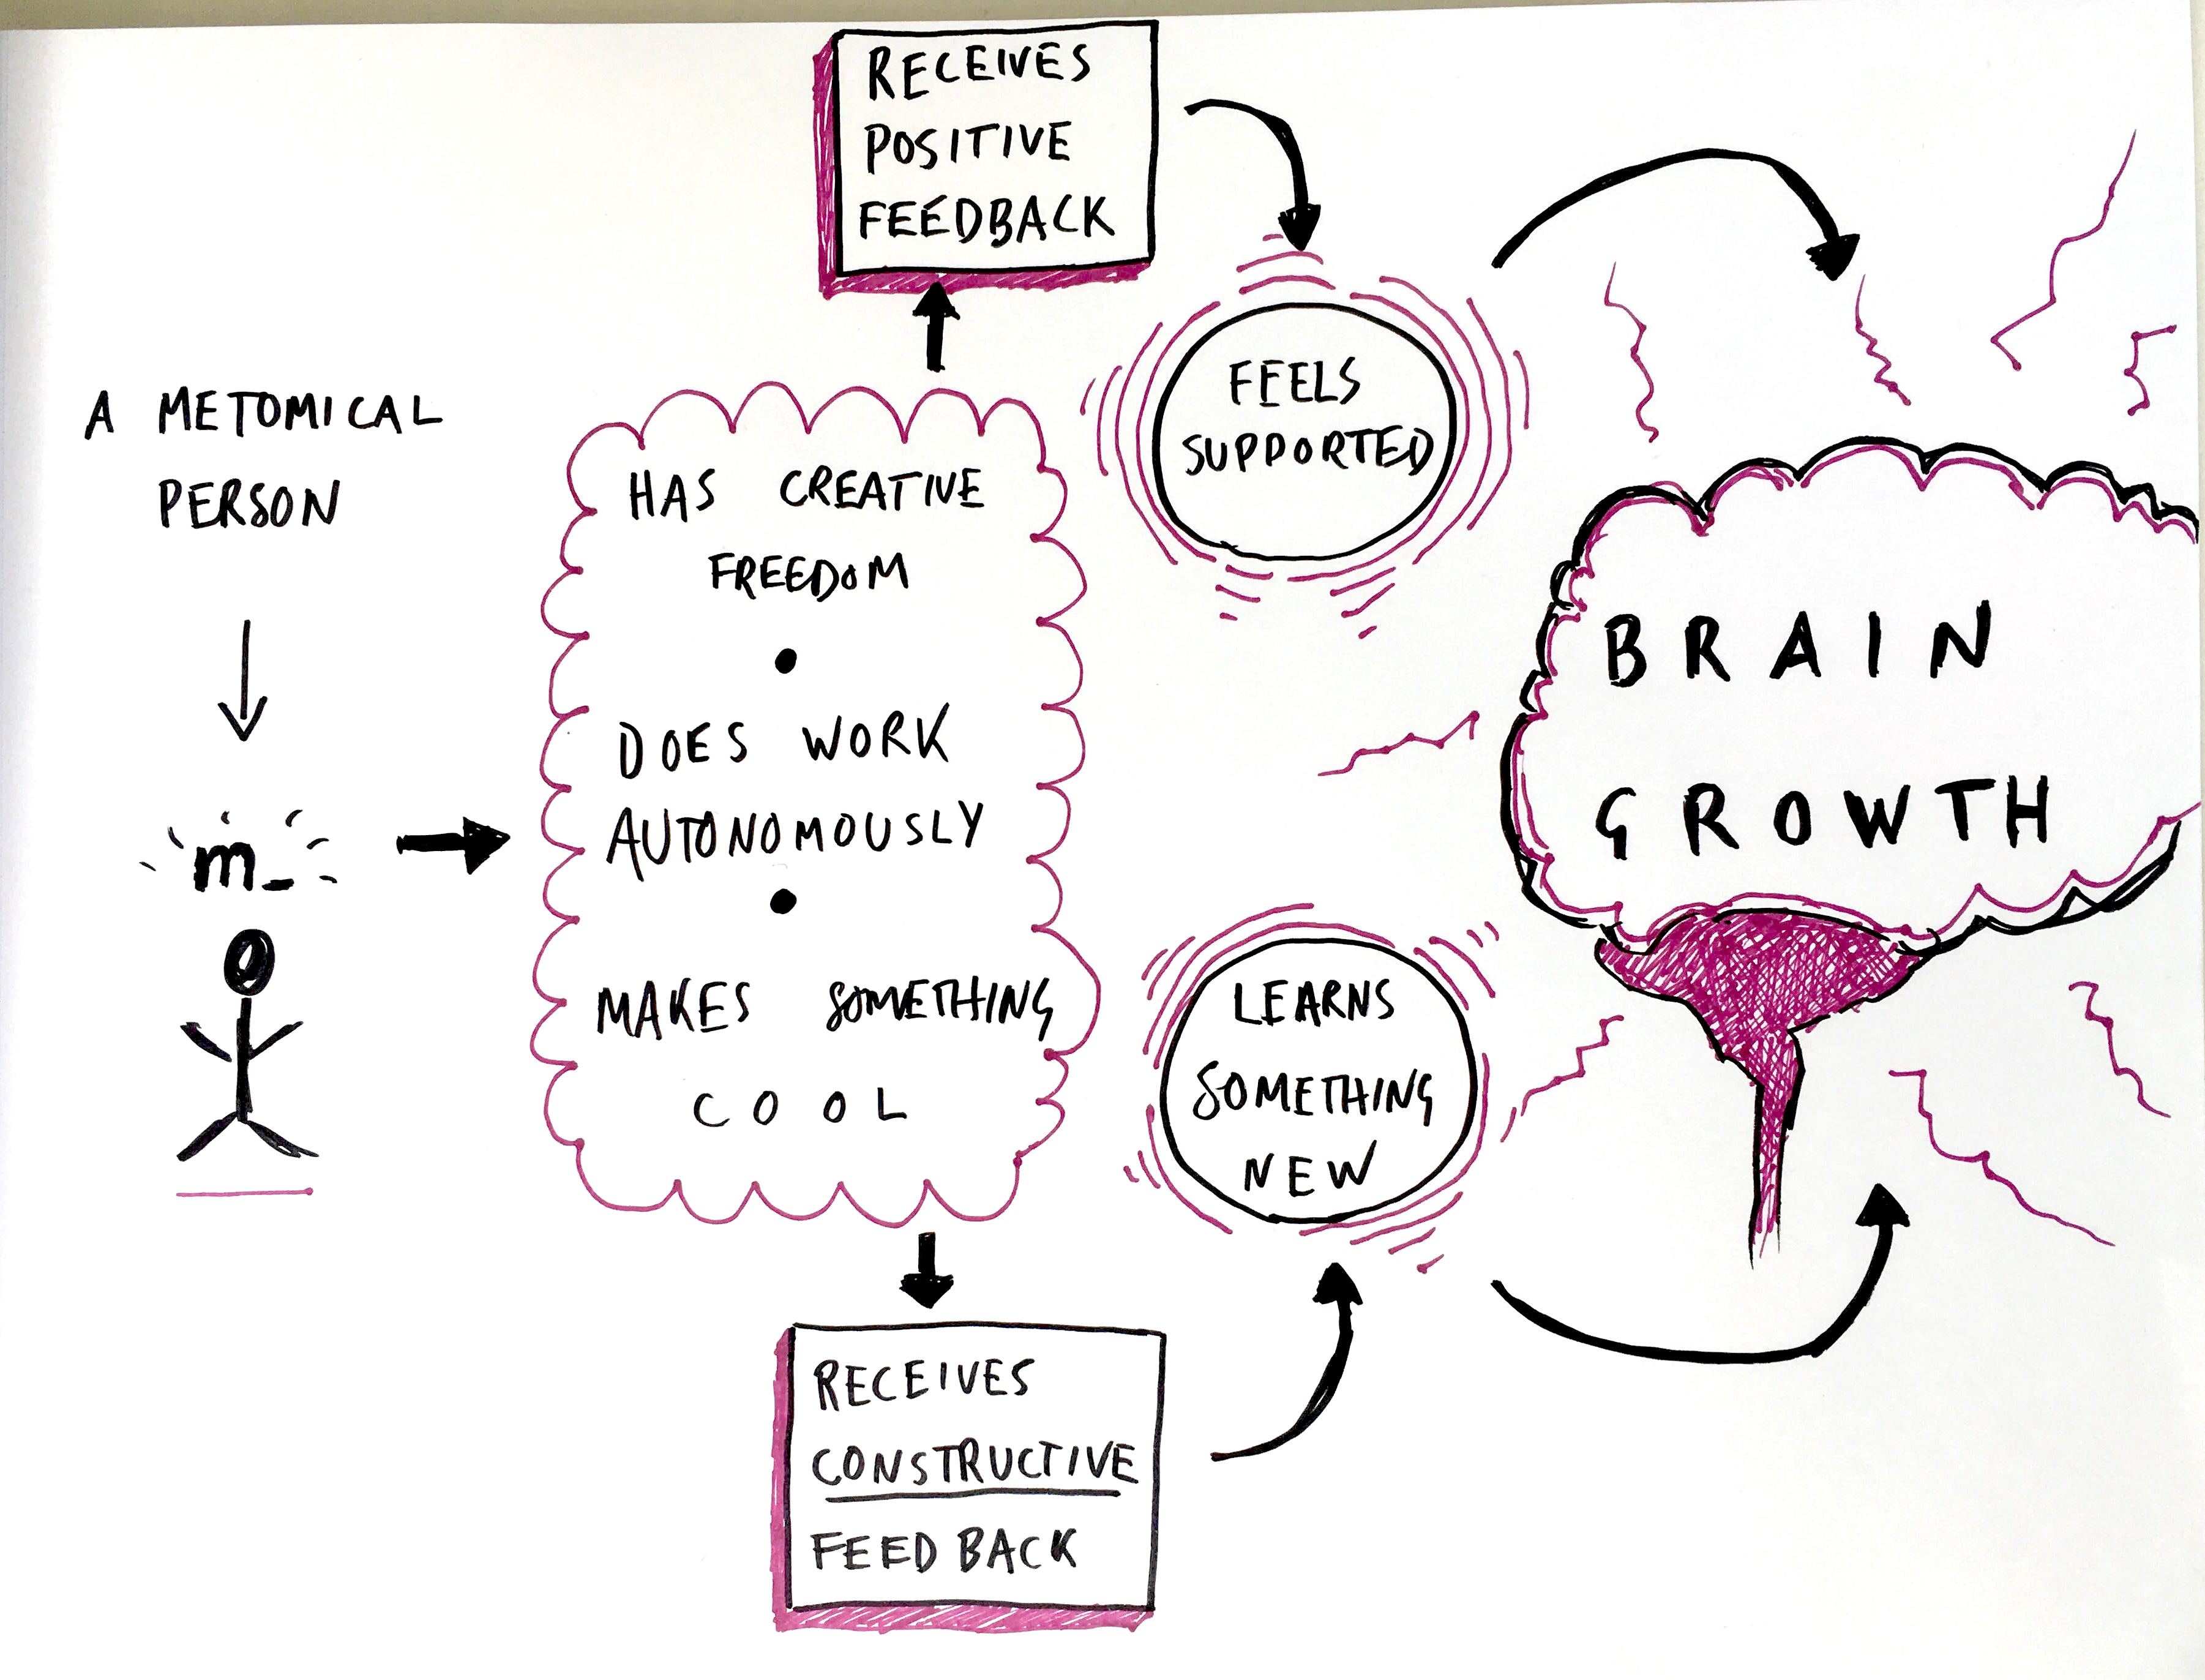 A METOMICAL
PERSON
m_
HAS CREATIVE
FREEDOM
•
DOES WORK
AUTONOMOUSLY
•
MAKES SOMETHING
COOL
RECEIVES
POSITIVE
FEEDBACK
FEELS
SUPPORTED
RECEIVES
CONSTRUCTIVE
FEEDBACK
LEARNS
SOMETHING
NEW
BRAIN
GROWTH